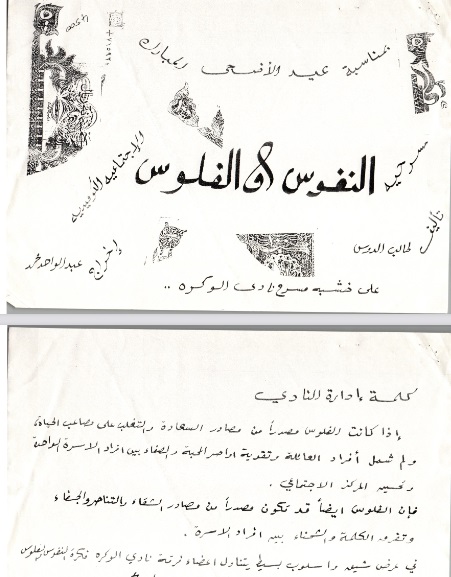 بمناسبة عيد الأضحى المبارك
مسرحية
النفوس أو الفلوس
الاجتماعية الكوميدية
تأليف
طالب الدوس
إخراج
عبدالواحد محمد
على خشبة مسرح نادي الوكره ..
كلمة إدارة النادي
إذا كانت الفلوس مصدراً من مصادر السعادة والتغلب على مصاعب الحياة،
ولم شمل أفراد العائلة وتقوية اواصر المحبة والصفاء بين افراد الاسرة الواحدة
وتحسين المركز الاجتماعي .
فإن الفلوس ايضاً قد تكون مصدراً من مصادر الشقاء والتناحر والجفاء
وتفرق الكلمة والشحناء بين افراد الاسرة .
في عرض شيق واسلوب بسيط يتناول اعضاء فرقة نادي الوكره فكرة النفوس والفلوس